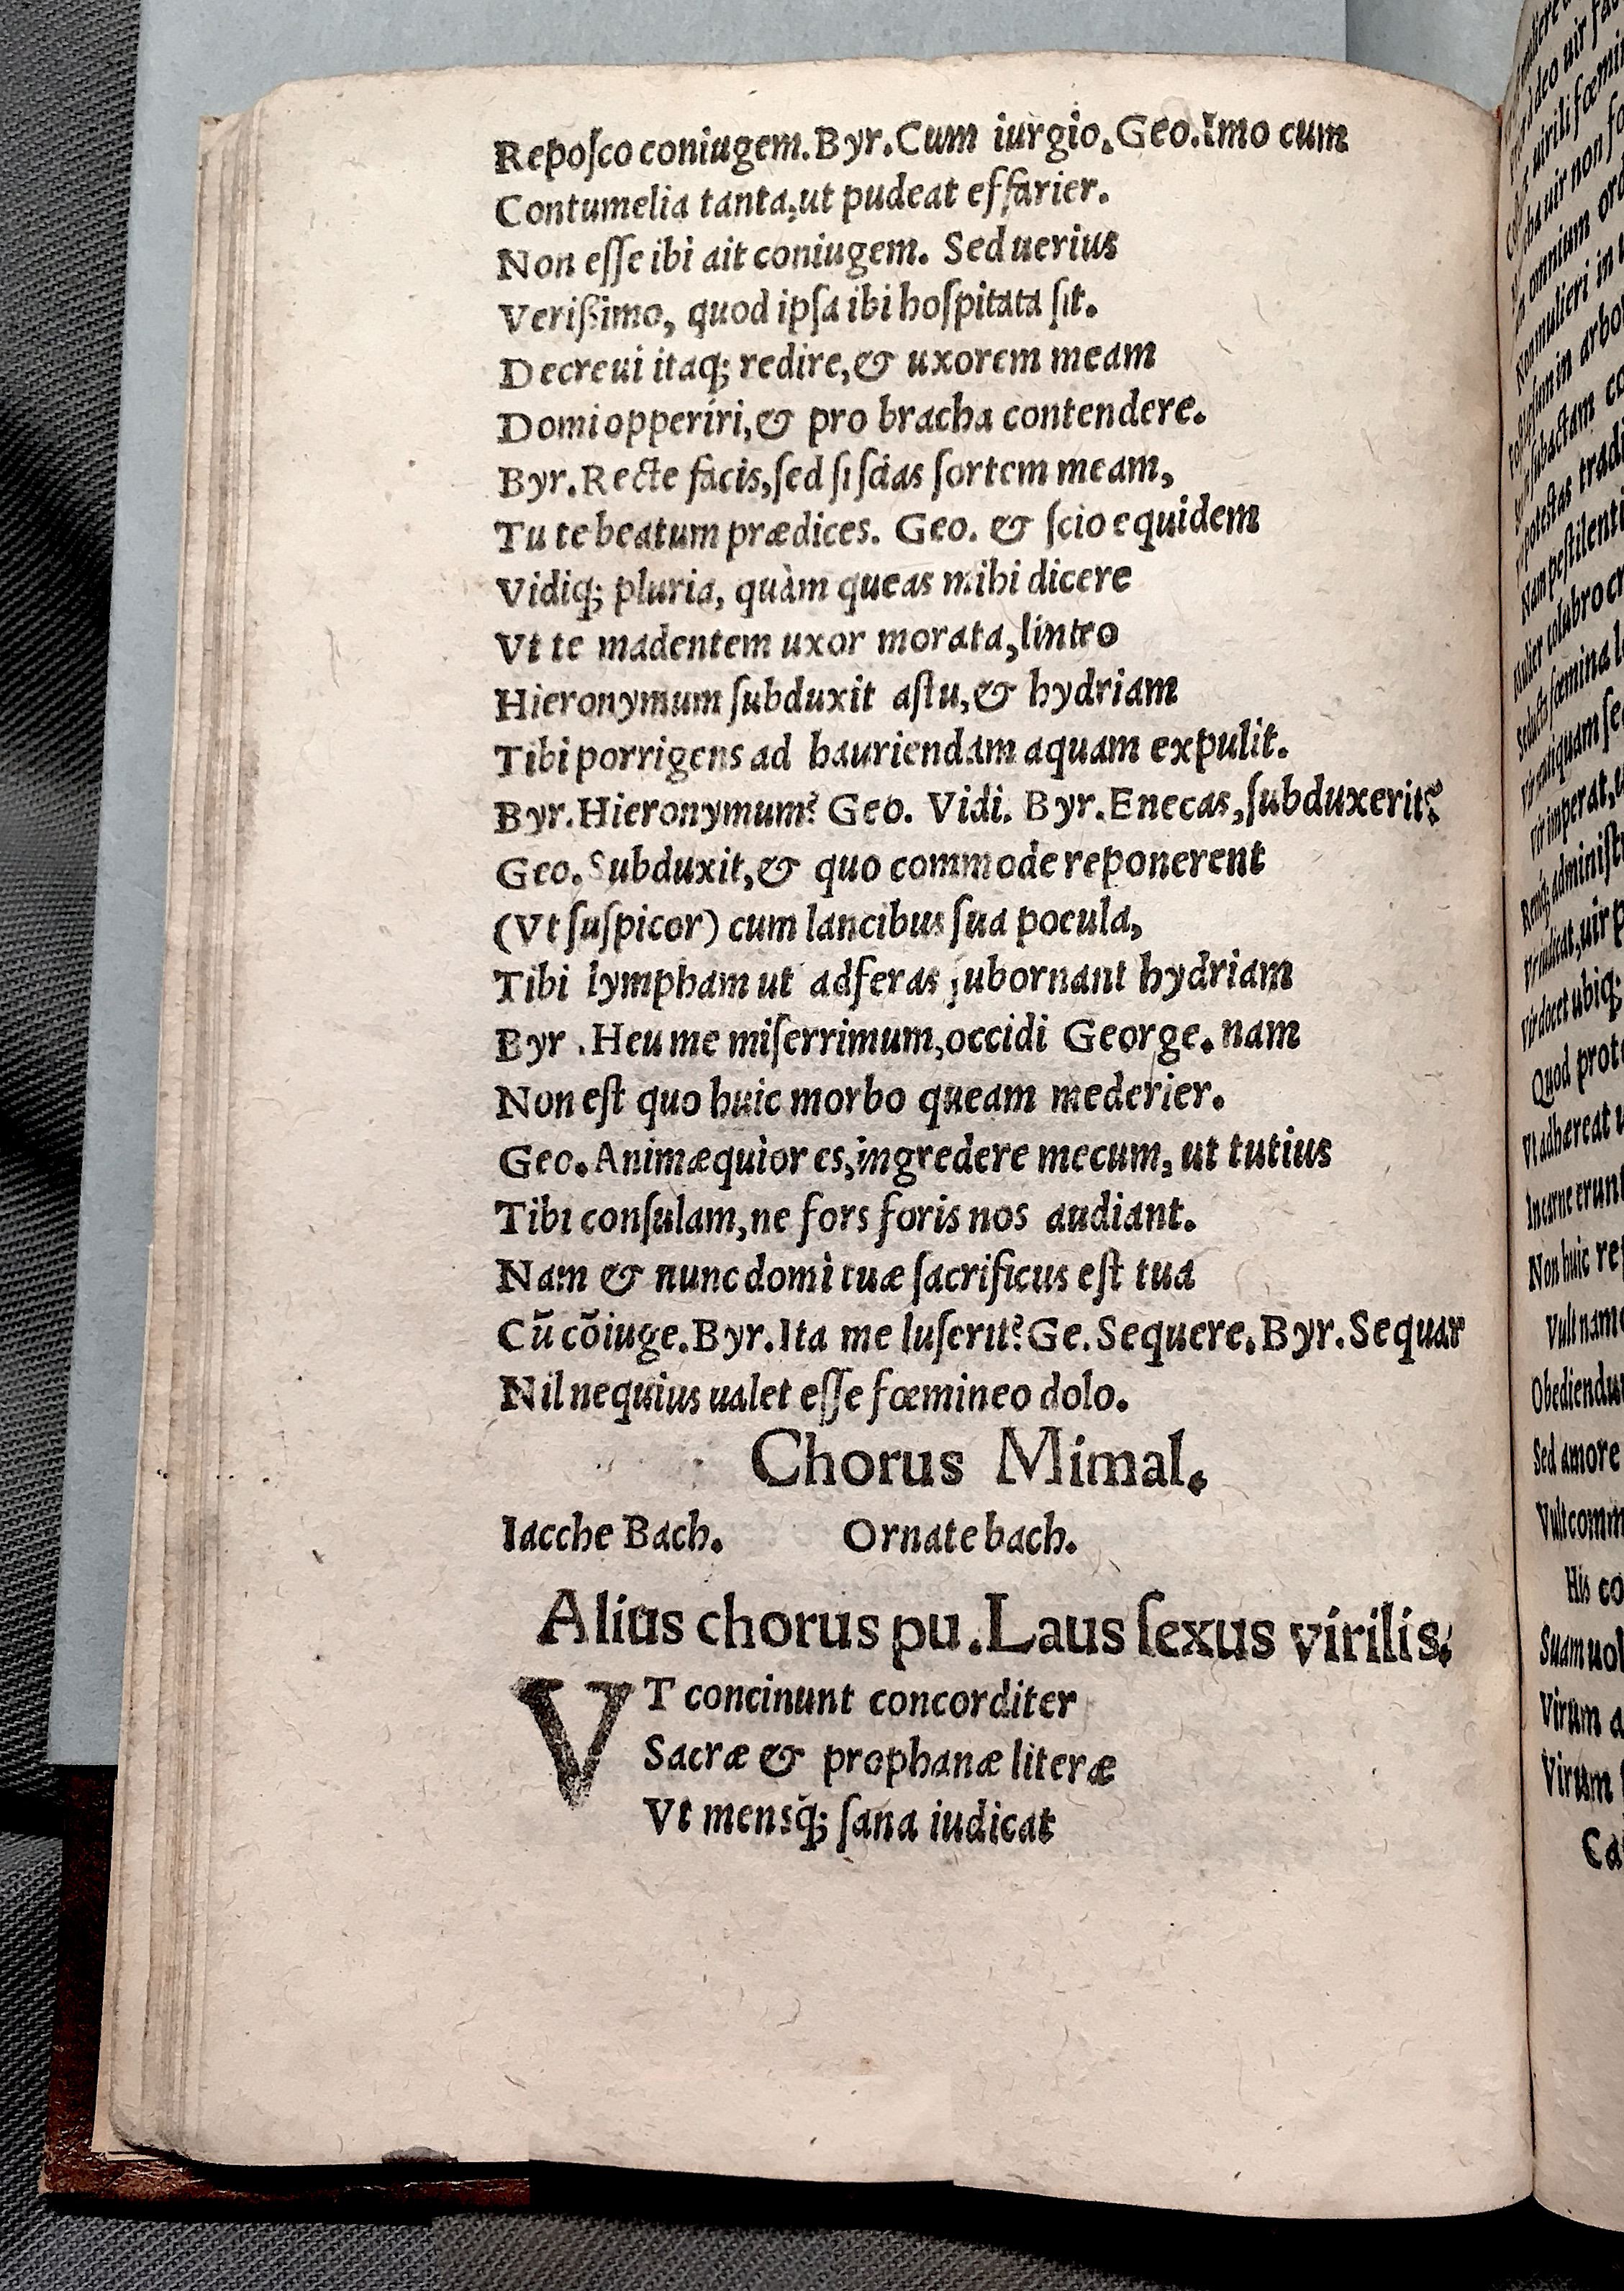 Repoſco coniugem. Byr. Cum iurgio. Geo. Imo cum
Contumelia tanta, ut pudeat effarier.
Non eſſe ibi ait coniugem. Sed uerius
Verißimo, quod ipſa ibi hoſpitata ſit.
Decreui itaq; redire, & uxorem meam
Domi opperiri, & pro bracha contendere.
Byr. Recte facis, ſed ſi ſcias ſortem meam,
Tu te beatum prædices. Geo. & ſcio equidem
Vidiq; pluria, quàm queas mihi dicere
Vt te madentem uxor morata, lintro
Hieronymum ſubduxit aſtu, & hydriam
Tibi porrigens ad hauriendam aquam expulit.
Byr. Hieronymum? Geo. Vidi. Byr. Enecas, ſubduxerit?
Geo. Subduxit, & quo commode reponerent
(Vt ſuſpicor) cum lancibus ſua pocula,
Tibi lympham ut adferas ſubornant hydriam
Byr. Heu me miſerrimum, occidi George. nam
Non eſt quo huic morbo queam mederier.
Geo. Animæquior es, ingredere mecum, ut tutius
Tibi conſulam, ne fors foris nos audiant.
Nam & nunc domi tuæ ſacrificus eſt tua
Cū cōiuge. Byr. Ita me luſerit? Ge. Sequere. Byr. Sequar
Nil nequius ualet eſſe fœmineo dolo.
Chorus Mimal.
Iacche Bach. Ornate bach.
Alius chorus pu. Laus ſexus virilis.
VT concinunt concorditer
Sacræ & prophanæ literæ
Vt mensq̃; ſana iudicat